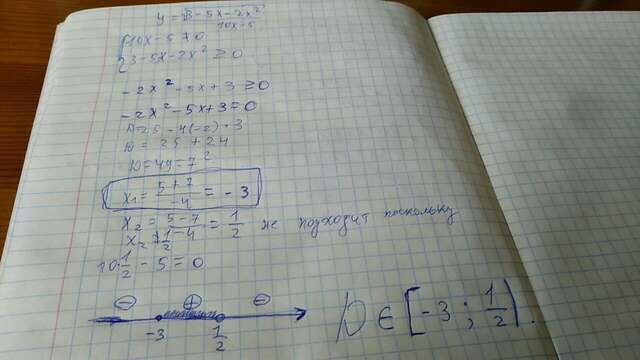 y = √3 - 5x - 2x²
10x-5
{10x - 5 ≠ 0
3 - 5x - 2x² ≥ 0
-2x² - 5x + 3 ≥ 0
-2x² - 5x + 3 = 0
D = 25 - 4(-2) · 3
D = 25 + 24
D = 49 = 7²
x₁ = (5 + 7)/(-4) = -3
x₂ = (5 - 7)/(-4) = 1/2 не подходит поскольку
x₂ ≠ 1/2
10 · 1/2 - 5 = 0
⊖ ⊕ ⊖
-3 1/2
D ∈ [-3 ; 1/2).